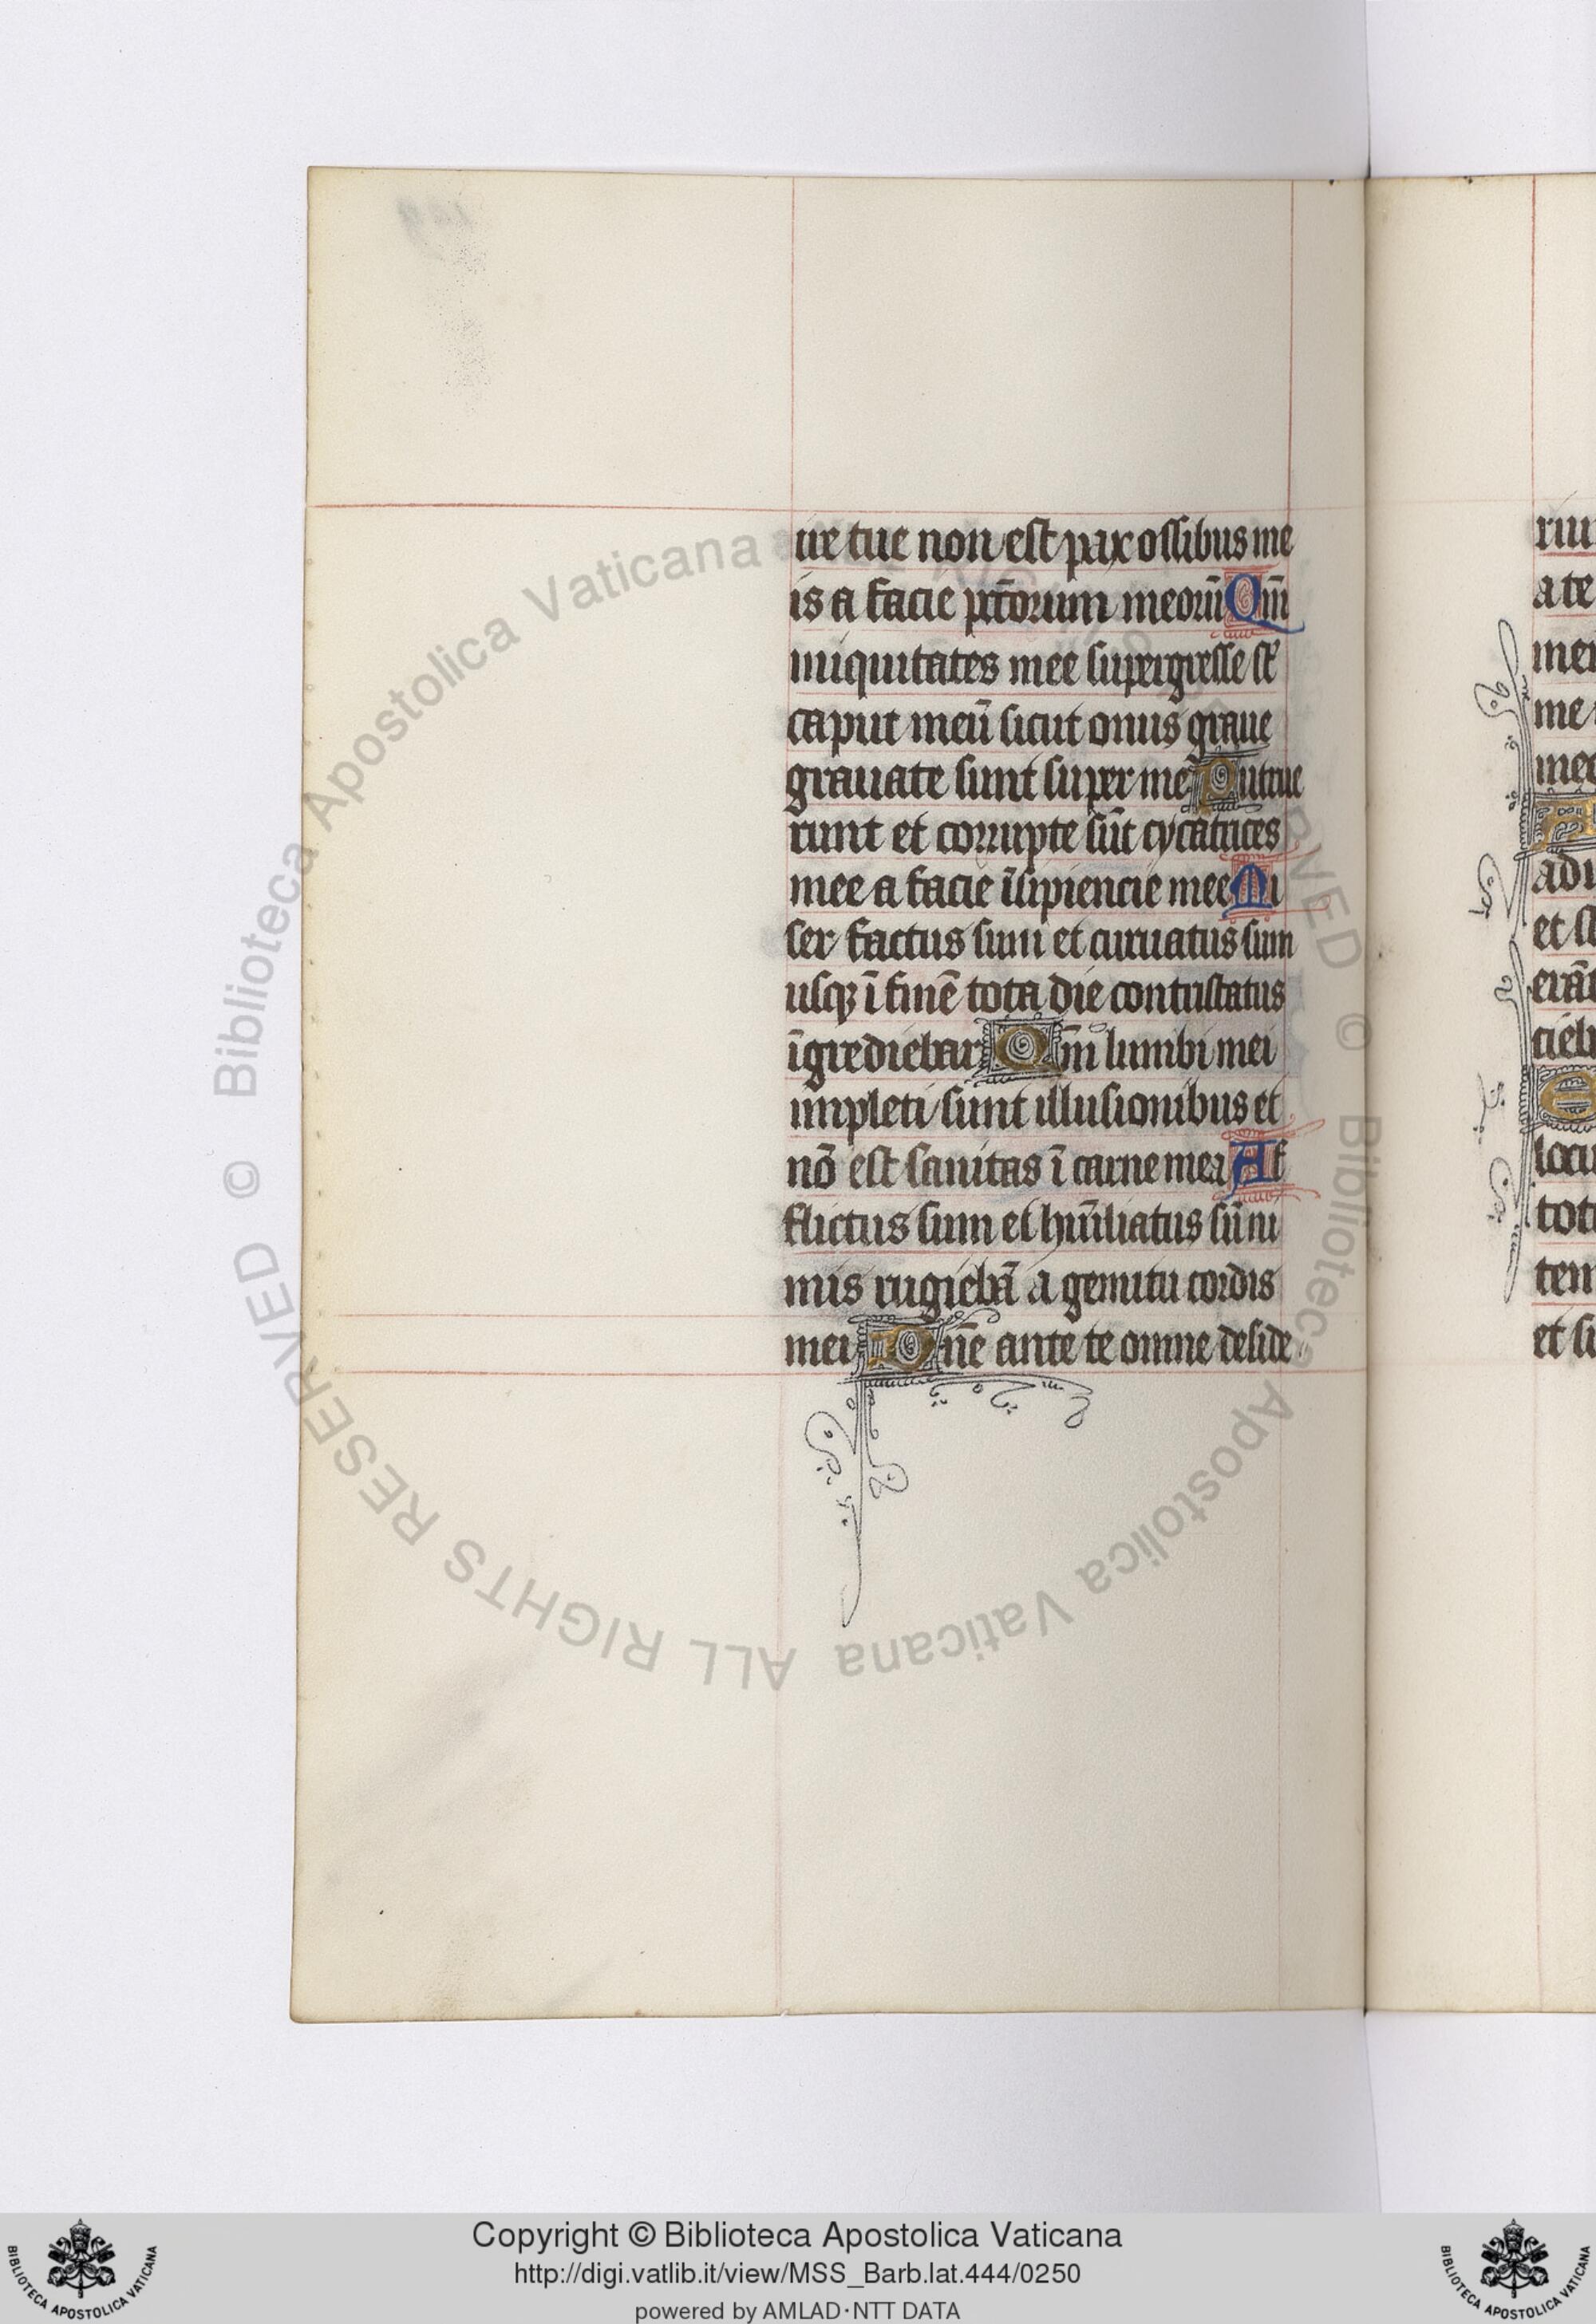 ire tue non est pax ossibus me
is a facie pctōrum meorū Qm̄
iniquitates mee supergresse sūt
caput meū sicut onus graue
grauate sunt super me Putrue
runt et corrupte sūt cycatrices
mee a facie īsipiencie mee Mi
ser factus sum et curuatus sum
usqꝫ ī finē tota die contristatus
īgrediebar Qm̄ lumbi mei
impleti sunt illusionibus et
nō est sanitas ī carne mea Af
flictus sum et hūiliatus sū ni
mis rugiebā a gemitu cordis
mei Dn̄e ante te omne deside
riu
a te
me
adi
et si
erāt
locu
tot
et si
© Biblioteca Apostolica Vaticana ALL RIGHTS RESERVED © Biblioteca Apostolica Vaticana ALL RIGHTS RESERVED
Copyright © Biblioteca Apostolica Vaticana
http://digi.vatlib.it/view/MSS_Barb.lat.444/0250
powered by AMLAD·NTT DATA
BIBLIOTECA APOSTOLICA VATICANA
BIBLIOTECA APOSTOLICA VATICANA